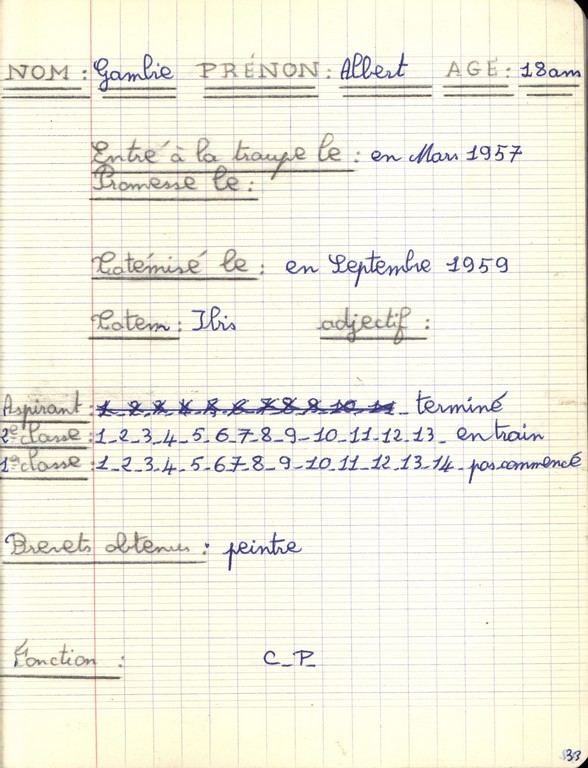 NOM : Gambie PRÉNON : Albert AGE : 18 ans
Entré à la troupe le : en Mars 1957
Promesse le :
Totémisé le : en Septembre 1959
Totem : Ibis adjectif :
Aspirant : 1 2 3 4 5 6 7 8 9 10 11 - terminé
2e classe : 1 - 2 - 3 - 4 - 5 - 6 - 7 - 8 - 9 - 10 - 11 - 12 - 13 - en train
1e classe : 1 - 2 - 3 - 4 - 5 - 6 - 7 - 8 - 9 - 10 - 11 - 12 - 13 - 14 - pas commencé
Brevets obtenus : peintre
Fonction : C - P
33